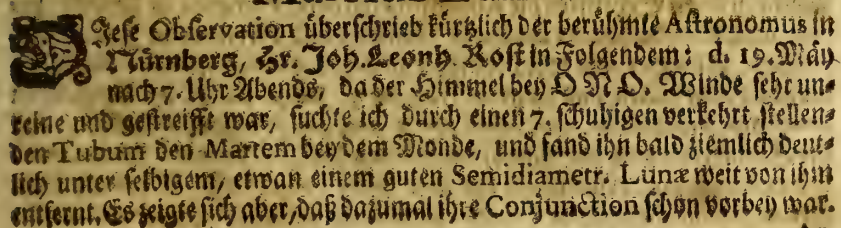 Diese Observation überschrieb kürtzlich der berühmte Astronomus in
Nürnberg, Hr. Joh. Leonh. Rost in Folgendem: d. 19. May
nach 7. Uhr Abends, da der Himmel bey O N O. Winde sehr un-
reine und gestreifft war, suchte ich durch einen 7. schuhigen verkehrt stellen-
den Tubum den Martem bey dem Monde, und fand ihn bald ziemlich deut-
lich unter selbigem, etwan einem guten Semidiametr. Lunæ weit von ihm
entfernt. Es zeigte sich aber, daß dazumal ihre Conjunction schon vorbey war.